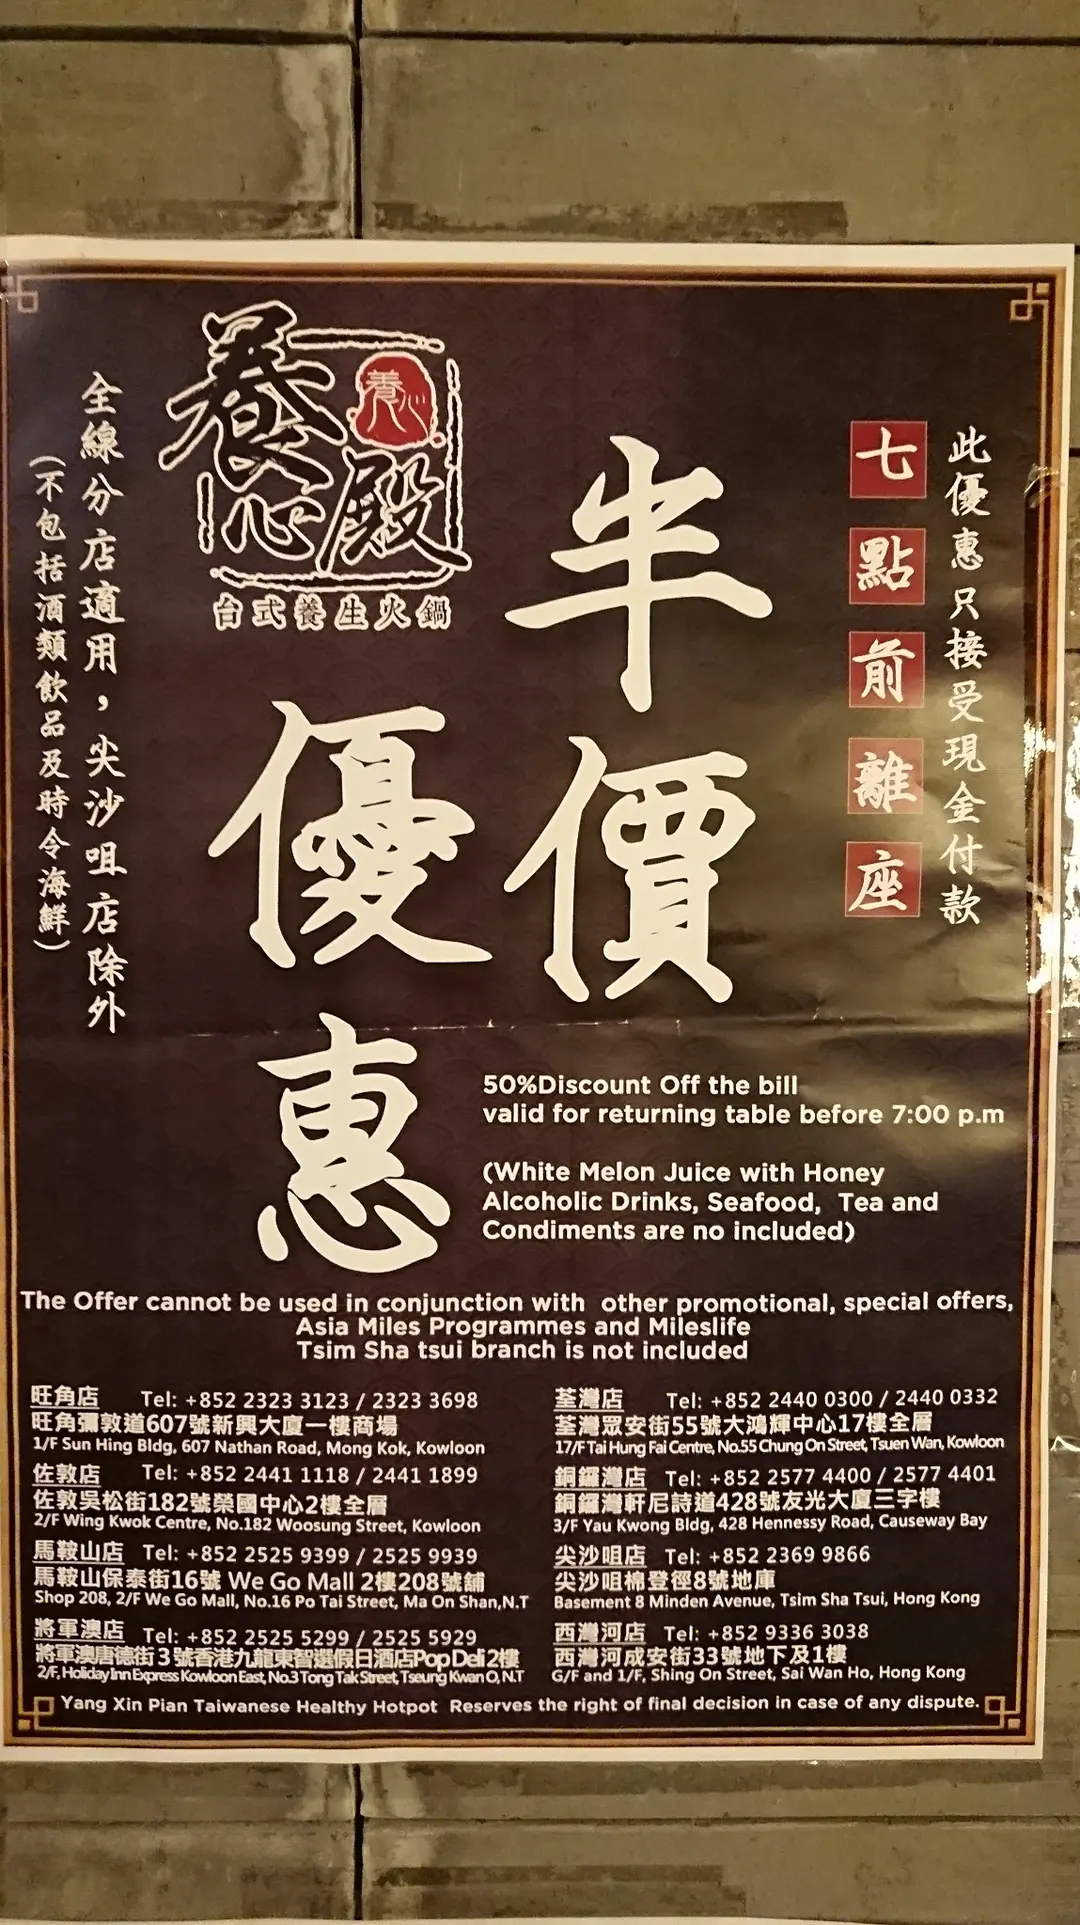 此優惠只接受現金付款
七點前離座
半價
優惠
養心殿
養心
台式養生火鍋
全線分店適用，尖沙咀店除外
(不包括酒類飲品及時令海鮮)
50%Discount Off the bill
valid for returning table before 7:00 p.m
(White Melon Juice with Honey
Alcoholic Drinks, Seafood, Tea and
Condiments are no included)
The Offer cannot be used in conjunction with other promotional, special offers,
Asia Miles Programmes and Mileslife
Tsim Sha tsui branch is not included
旺角店 Tel: +852 2323 3123 / 2323 3698
旺角彌敦道607號新興大廈一樓商場
1/F Sun Hing Bldg, 607 Nathan Road, Mong Kok, Kowloon
佐敦店 Tel: +852 2441 1118 / 2441 1899
佐敦吳松街182號榮國中心2樓全層
2/F Wing Kwok Centre, No.182 Woosung Street, Kowloon
馬鞍山店 Tel: +852 2525 9399 / 2525 9939
馬鞍山保泰街16號 We Go Mall 2樓208號舖
Shop 208, 2/F We Go Mall, No.16 Po Tai Street, Ma On Shan,N.T
將軍澳店 Tel: +852 2525 5299 / 2525 5929
將軍澳唐德街3號香港九龍東智選假日酒店Pop Deli 2樓
2/F, Holiday Inn Express Kowloon East, No.3 Tong Tak Street, Tseung Kwan O, N.T
荃灣店 Tel: +852 2440 0300 / 2440 0332
荃灣眾安街55號大鴻輝中心17樓全層
17/F Tai Hung Fai Centre, No.55 Chung On Street, Tsuen Wan, Kowloon
銅鑼灣店 Tel: +852 2577 4400 / 2577 4401
銅鑼灣軒尼詩道428號友光大廈三字樓
3/F Yau Kwong Bldg, 428 Hennessy Road, Causeway Bay
尖沙咀店 Tel: +852 2369 9866
尖沙咀棉登徑8號地庫
Basement 8 Minden Avenue, Tsim Sha Tsui, Hong Kong
西灣河店 Tel: +852 9336 3038
西灣河成安街33號地下及1樓
G/F and 1/F, Shing On Street, Sai Wan Ho, Hong Kong
Yang Xin Pian Taiwanese Healthy Hotpot Reserves the right of final decision in case of any dispute.